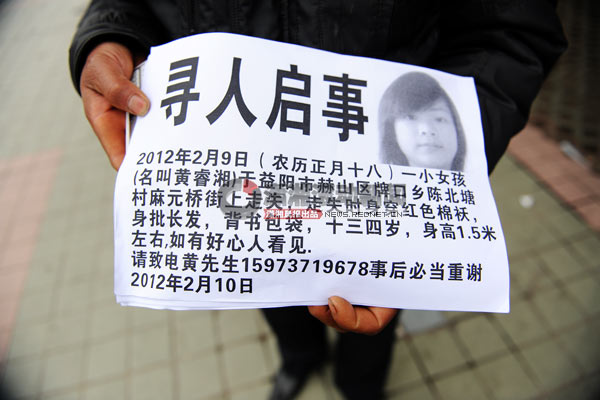 寻人启事
2012年2月9日（农历正月十八）一小女孩
(名叫黄睿湘)于益阳市赫山区牌口乡陈北塘
村麻元桥街上走失，走失时身穿红色棉袄，
身批长发，背书包袋，十三四岁，身高1.5米
左右,如有好心人看见.
请致电黄先生15973719678事后必当重谢
2012年2月10日
NEWS.REDNET.CN